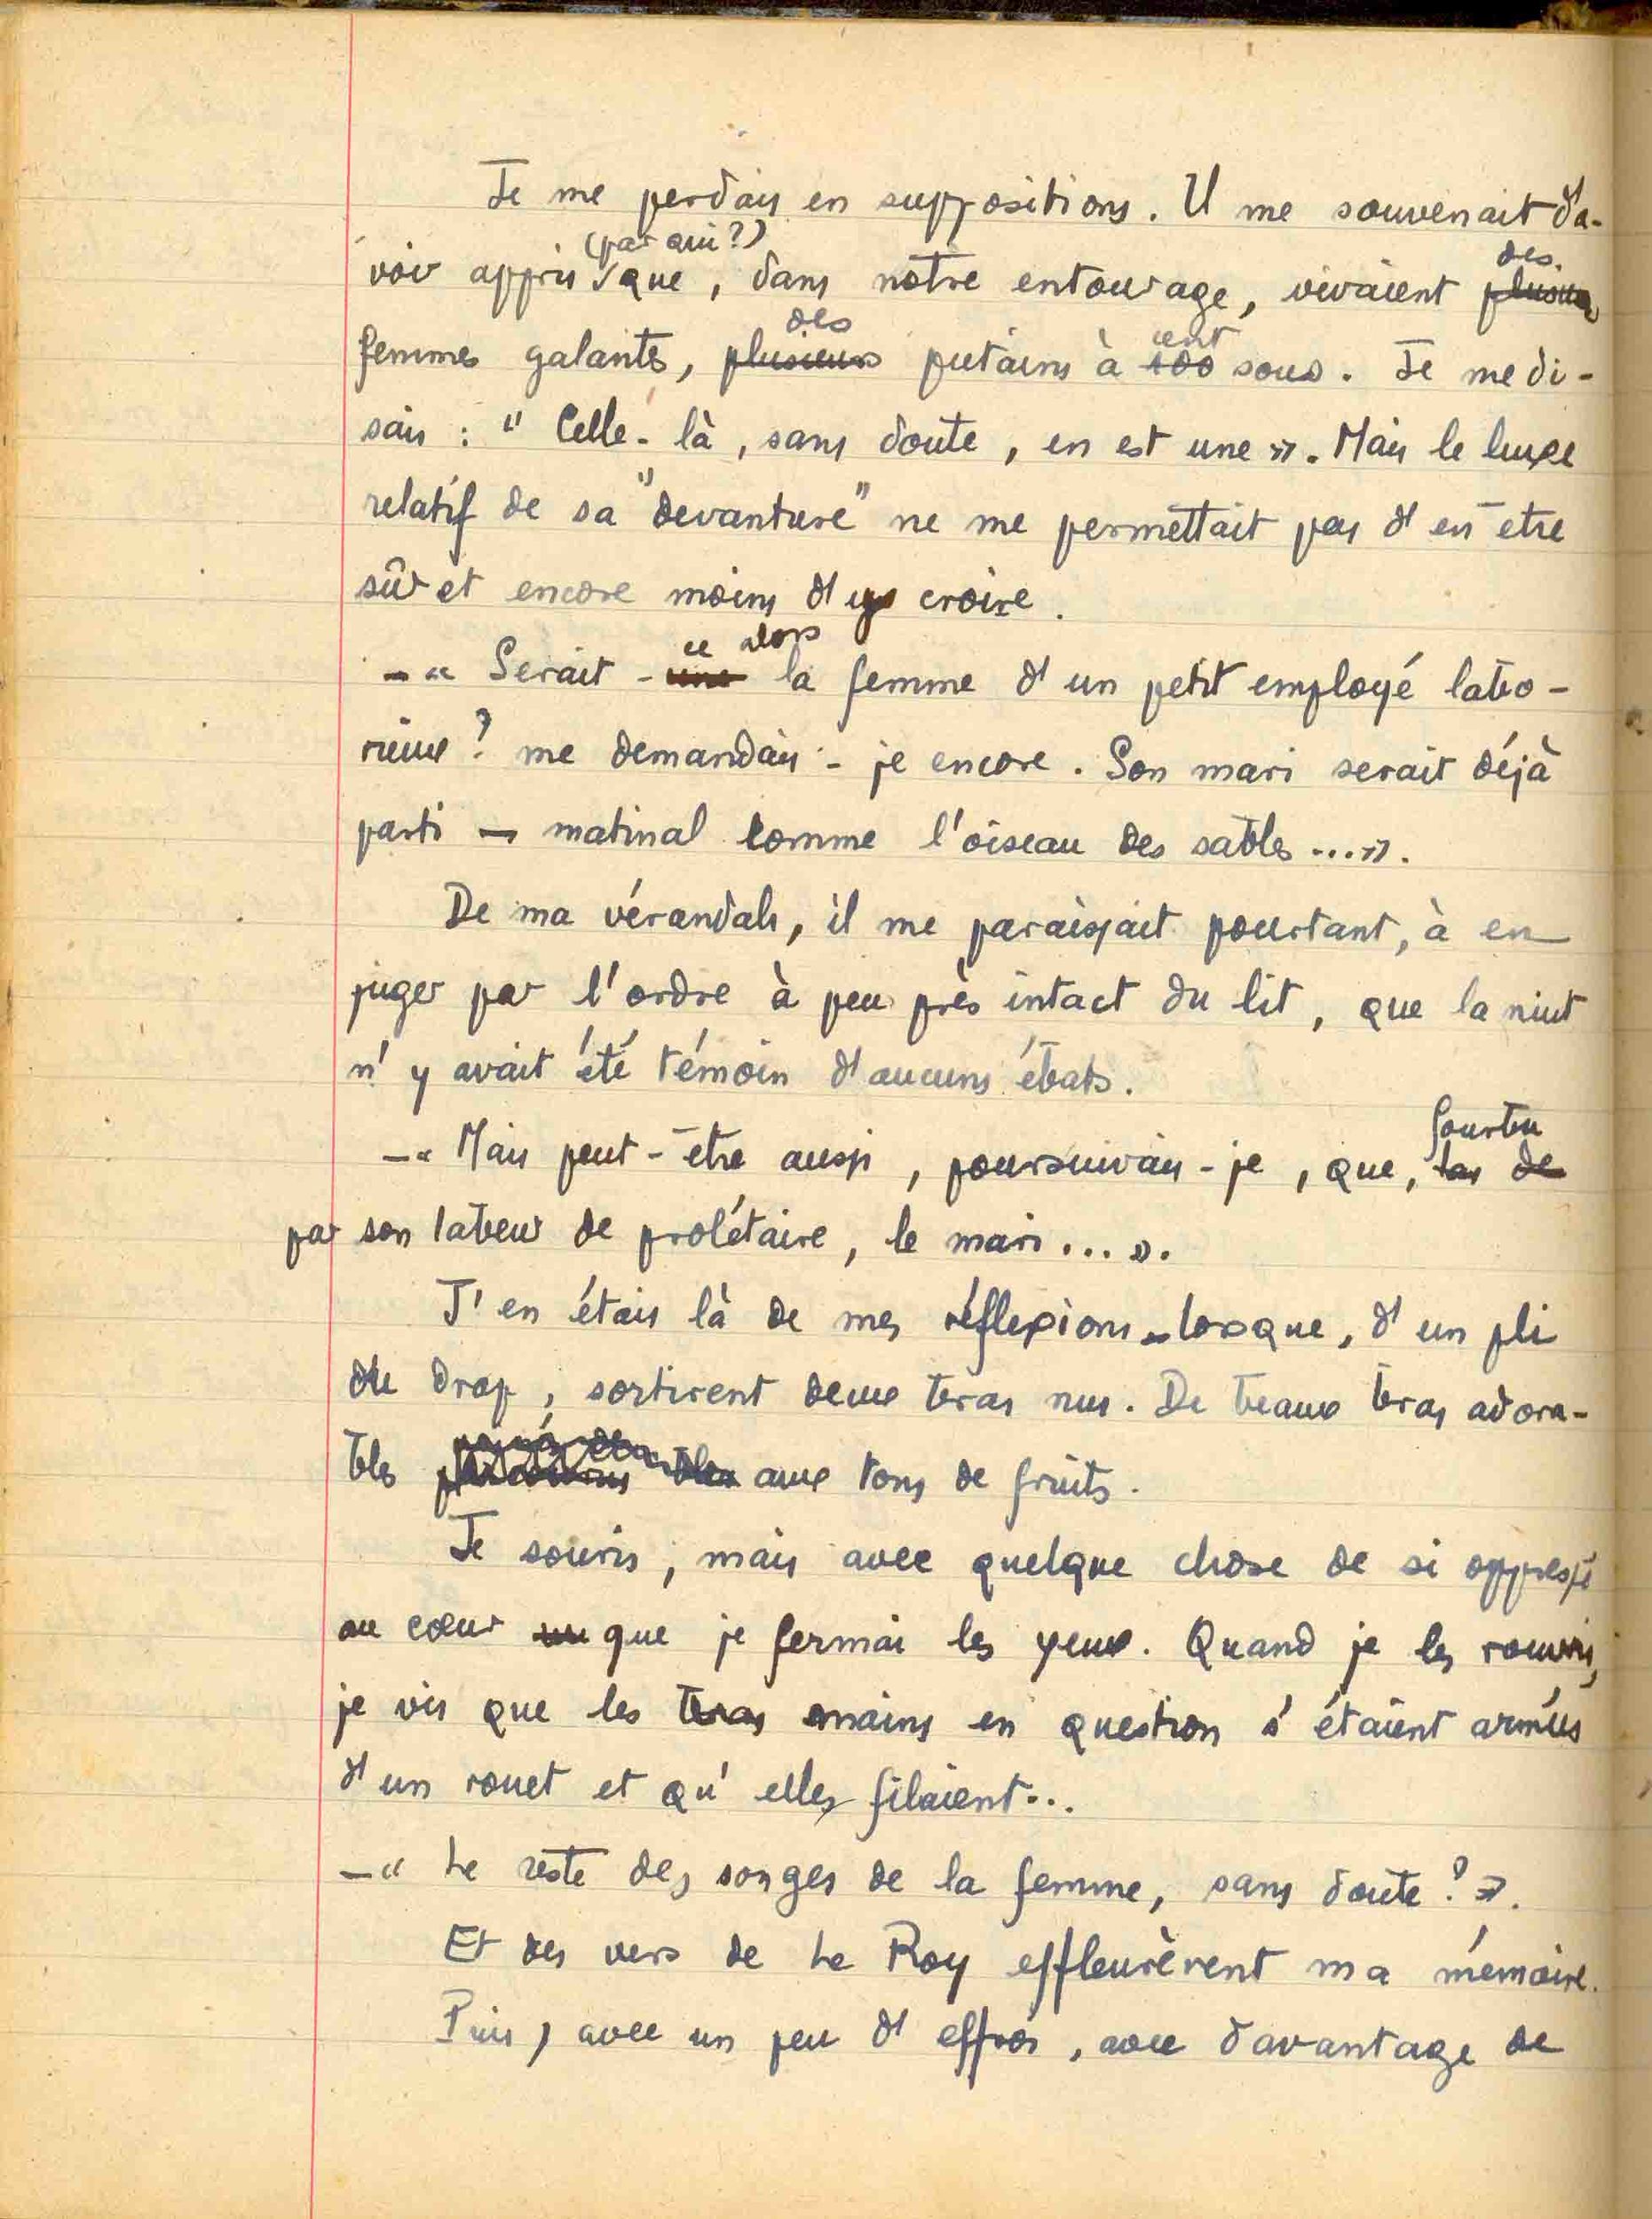 Je me perdais en suppositions. Il me souvenait d'a-
(par qui?)
voir appris que, dans notre entourage, vivaient plusieurs
des
femmes galantes, plusieurs putains à 100 sous. Je me di-
des
cent
sais : " Celle-là, sans doute, en est une ». Mais le luxe
relatif de sa "devanture" ne me permettait pas d'en être
sûr et encore moins d'y croire.
ce alors
– « Serait - la femme d'un petit employé labo-
rieux ? me demandais-je encore. Son mari serait déjà
parti – matinal comme l'oiseau des sables ... ».
De ma vérandah, il me paraissait pourtant, à en
juger par l'ordre à peu près intact du lit, que la niut
n'y avait été témoin d'aucuns ébats.
– « Mais peut-être aussi, poursuivais-je, que, las de
fourbu
par son labeur de prolétaire, le mari ... ».
J'en étais là de mes réflexions lorsque, d'un pli
du drap, sortirent deux bras nus. De beaux bras adora-
bles aux tons de fruits.
Je souris, mais avec quelque chose de si oppressé
au cœur que je fermai les yeux. Quand je les rouvris,
je vis que les bras mains en question s'étaient armées
d'un rouet et qu'elles filaient...
– « Le reste des songes de la femme, sans doute ? ».
Et des vers de Le Roy effleurèrent ma mémoire.
Puis, avec un peu d'effroi, avec davantage de